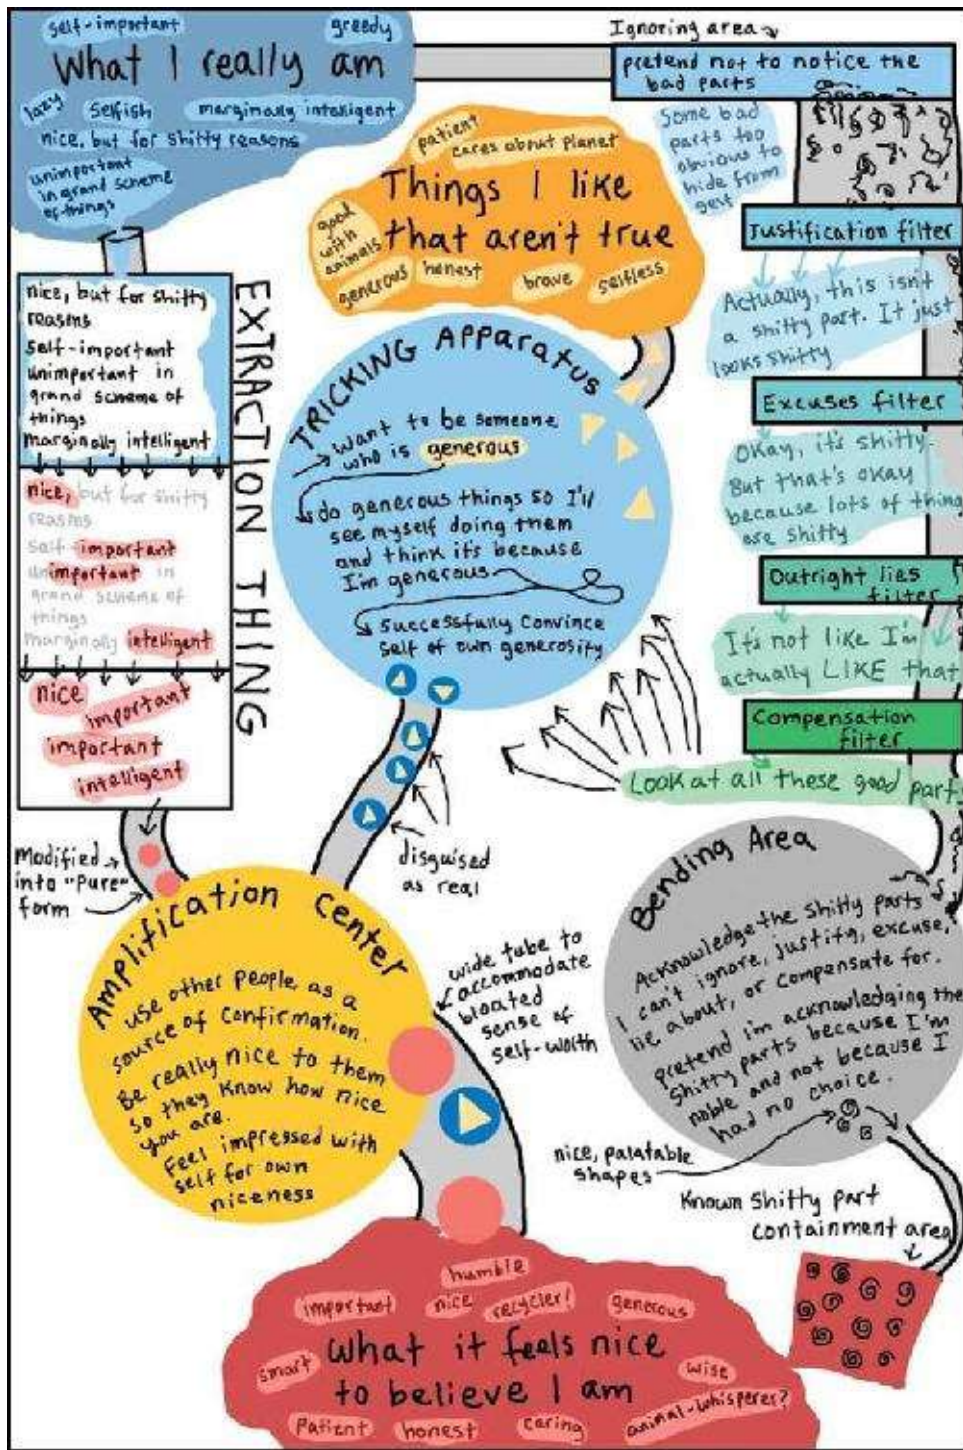 self-important
greedy
What I really am
lazy
selfish
marginally intelligent
nice, but for shitty reasons
unimportant
in grand scheme
of things
Ignoring area
pretend not to notice the
bad parts
Some bad
parts too
obvious to
hide from
self
patient
cares about planet
Things I like
that aren't true
good
with
animals
generous
honest
brave
selfless
Justification filter
Actually, this isn't
a shitty part. It just
looks shitty
Excuses filter
Okay, it's shitty.
But that's okay
because lots of thing
are shitty
Outright lies
filter
It's not like I'm
actually LIKE that
Compensation
filter
Look at all these good part
EXTRACTION THING
nice, but for shitty
reasons
self-important
unimportant in
grand scheme of
things
marginally intelligent
nice, but for shitty
reasons
self-important
unimportant in
grand scheme of
things
marginally intelligent
nice
important
important
intelligent
Modified
into "Pure"
form
TRICKING APParatus
Want to be someone
who is generous
do generous things so I'll
see myself doing them
and think it's because
I'm generous
successfully convince
self of own generosity
disguised
as real
Amplification Center
use other people as a
source of confirmation.
Be really nice to them
so they know how nice
you are.
Feel impressed with
self for own
niceness
wide tube to
accommodate
bloated
sense of
self-worth
Bending Area
Acknowledge the shitty parts
I can't ignore, justify, excuse,
lie about, or compensate for.
pretend im acknowledging the
shitty parts because I'm
noble and not because I
had no choice.
nice, palatable
shapes
Known shitty part
containment area
humble
important
nice
recycler!
generous
smart
What it feels nice
to believe I am
wise
patient
honest
caring
animal-whisperer?